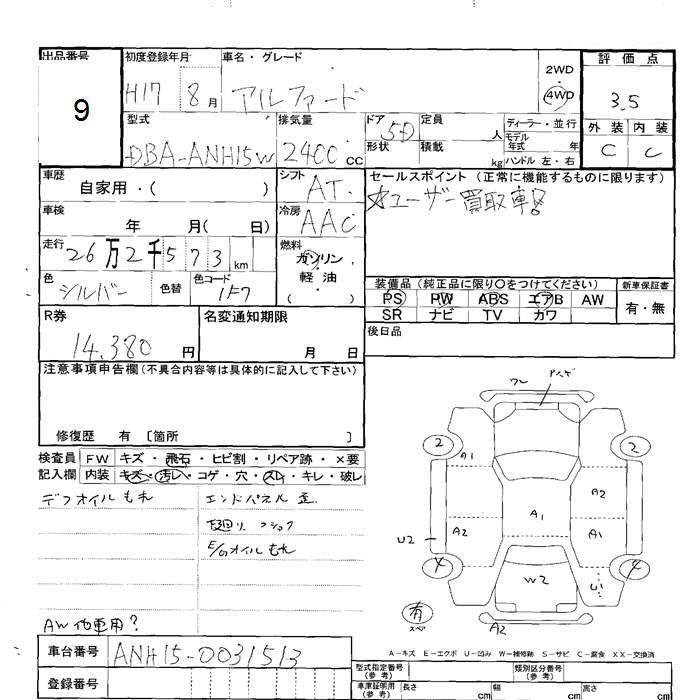 出品番号 初度登録年月 車名・グレード 評価点
9
H17 8月 アルファード 2WD 4WD 3.5
型式 排気量 ドア 5D 定員 人 ディーラー・並行 外装 内装
形状 積載 kg モデル年式 年 ハンドル 左・右
DBA-ANH15W 2400 cc C C
車歴 シフト セールスポイント (正常に機能するものに限ります)
自家用・( ) AT ☆ユーザー買取車!
車検 冷房
年 月( 日) AAC
走行 26万2千573 km 燃料 ガソリン 軽油 ( )
色 シルバー 色替 色コード 1F7
装備品 (純正品に限り○をつけてください) 新車保証書
PS PW ABS エアB AW 有・無
SR ナビ TV カワ
R券 名変通知期限 後日品
14,380 円 月 日
注意事項申告欄 (不具合内容等は具体的に記入して下さい)
修復歴 有 〔箇所 〕
検査員 FW キズ・飛石・ヒビ割・リペア跡・×要
記入欄 内装 キズ・汚レ・コゲ・穴・スレ・キレ・破レ
デフオイルもれ エンドパネル歪
下廻り
E/Gオイルもれ
AW他車用?
2 A1 2
A2
A2 A1 A1
U2
4 4
W2
有 スペア A2
A-キズ E-エクボ U-凹み W-補修跡 S-サビ C-腐食 XX-交換済
車台番号 ANH15-0031513
登録番号
型式指定番号 (参考) 類別区分番号 (参考)
車庫証明用 (参考) 長さ cm 幅 cm 高さ cm